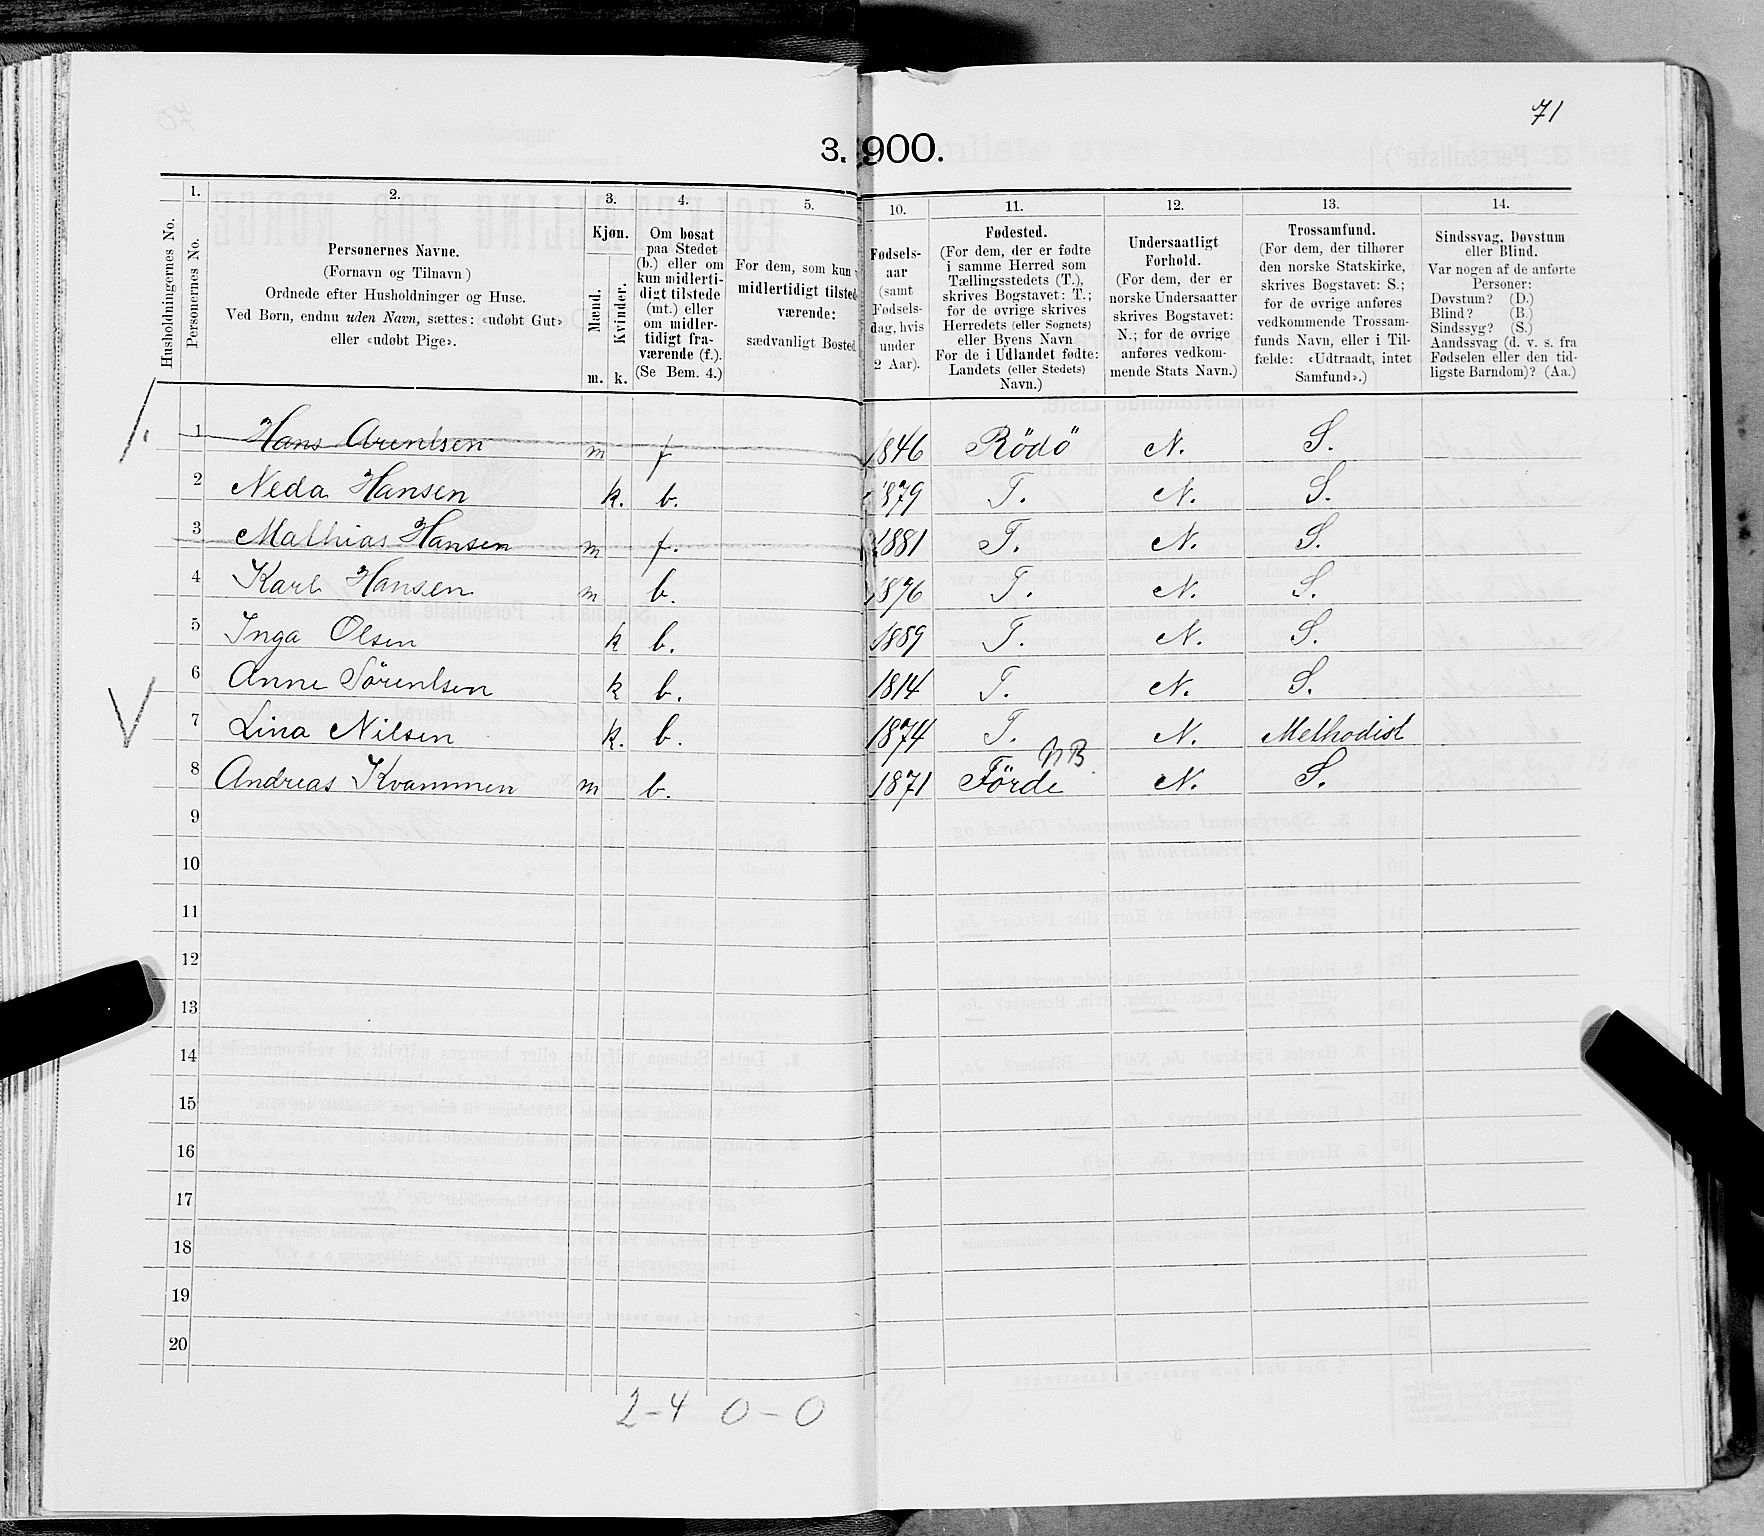 71
3. 900.
1. 2. 3. 4. 5. 10. 11. 12. 13. 14.
Husholdningernes No.
Personernes No.
Personernes Navne.
(Fornavn og Tilnavn)
Ordnede efter Husholdninger og Huse.
Ved Børn, endnu uden Navn, sættes: «udøbt Gut»
eller «udøbt Pige».
Kjøn.
Mænd.
Kvinder.
m. k.
Om bosat
paa Stedet
(b.) eller om
kun midlerti-
digt tilstede
(mt.) eller
om midler-
tidigt fra-
værende (f.).
(Se Bem. 4.)
For dem, som kun
midlertidigt tilsted
værende:
sædvanligt Bosted
Fødsels-
aar
(samt
Fødsels-
dag, hvis
under
2 Aar).
Fødested.
(For dem, der er fødte
i samme Herred som
Tællingsstedets (T.),
skrives Bogstavet: T.;
for de øvrige skrives
Herredets (eller Sognets)
eller Byens Navn
For de i Udlandet fødte:
Landets (eller Stedets)
Navn.)
Undersaatligt
Forhold.
(For dem, der er
norske Undersaatter
skrives Bogstavet:
N.; for de øvrige
anføres vedkom-
mende Stats Navn.)
Trossamfund.
(For dem, der tilhører
den norske Statskirke,
skrives Bogstavet: S.;
for de øvrige anføres
vedkommende Trossam-
funds Navn, eller i Til-
fælde: «Udtraadt, intet
Samfund».)
Sindssvag, Døvstum
eller Blind.
Var nogen af de anførte
Personer:
Døvstum? (D.)
Blind? (B.)
Sindssyg? (S.)
Aandssvag (d. v. s. fra
Fødselen eller den tid-
ligste Barndom)? (Aa.)
1 Hans Arentsen m f 1846 Rödö N. S.
2 Neda Hansen k. b. 1879 T. N. S.
3 Mathias Hansen m f. 1881 T. N. S.
4 Karl Hansen m b. 1876 T. N. S.
5 Inga Olsen k b. 1889 T. N. S.
6 Anne Sörentsen k b. 1814 T. N. S.
V 7 Lina Nilsen k. b. 1874 T. N. Methodist
NB.
8 Andreas Kvammen m b. 1871 Förde N. S.
9
10
11
12
13
14
15
16
17
18
19
20
2-4 0-0